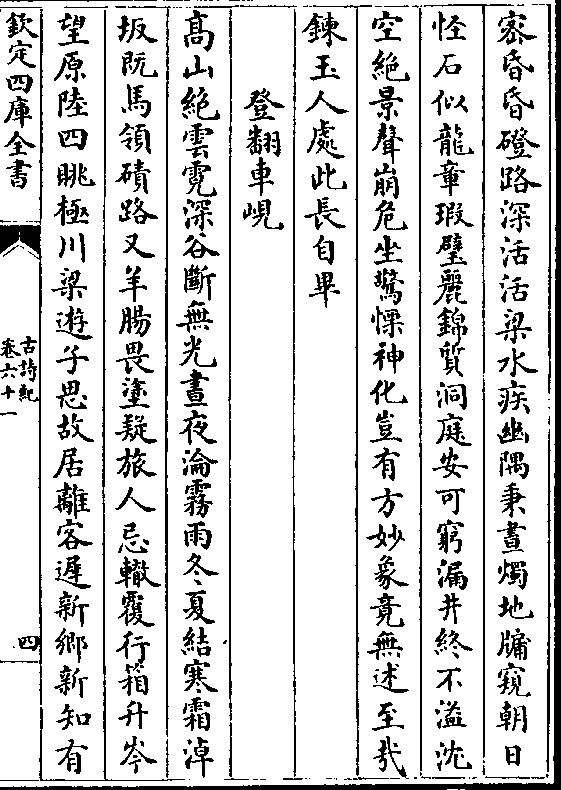 密昏昏磴路深活活梁水疾幽隅秉晝燭地牖窺朝日
怪石似龍章瑕璧麗錦質洞庭安可窮漏井終不溢沈
空絶景聲崩危坐驚慄神化豈有方妙象竟無述至哉
鍊玉人處此長自畢
登翻車峴
高山絶雲霓深谷斷無光晝夜淪霧雨冬夏結寒霜淖
坂既馬領磧路又羊腸畏塗疑旅人忌轍覆行箱升岑
望原陸四眺極川梁遊子思故居離客遲新鄉新知有
欽定四庫全書
古詩紀
卷六十一
四